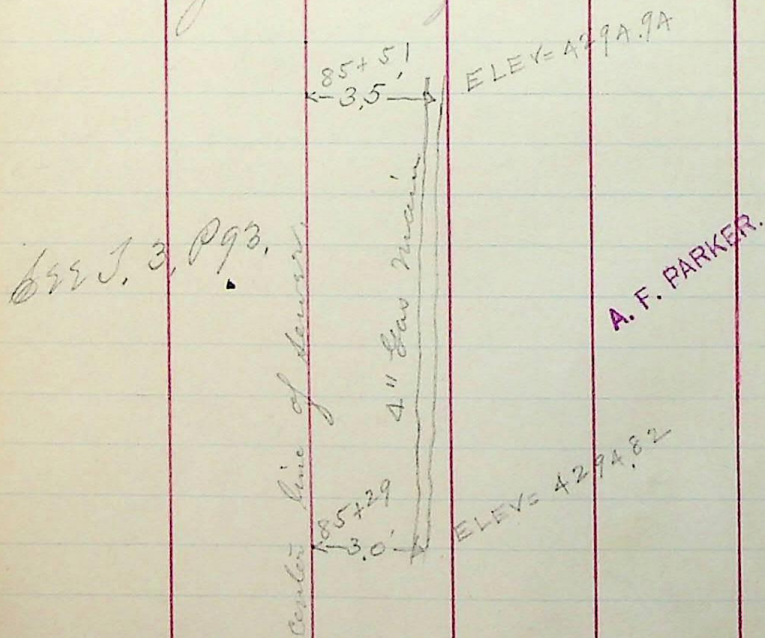 85+51
3.5
ELEV= 4294.94
See J. 3, P93.
center line of sewer.
4" Gas Main
A. F. PARKER.
85+29
3.0'
ELEV= 4294.82